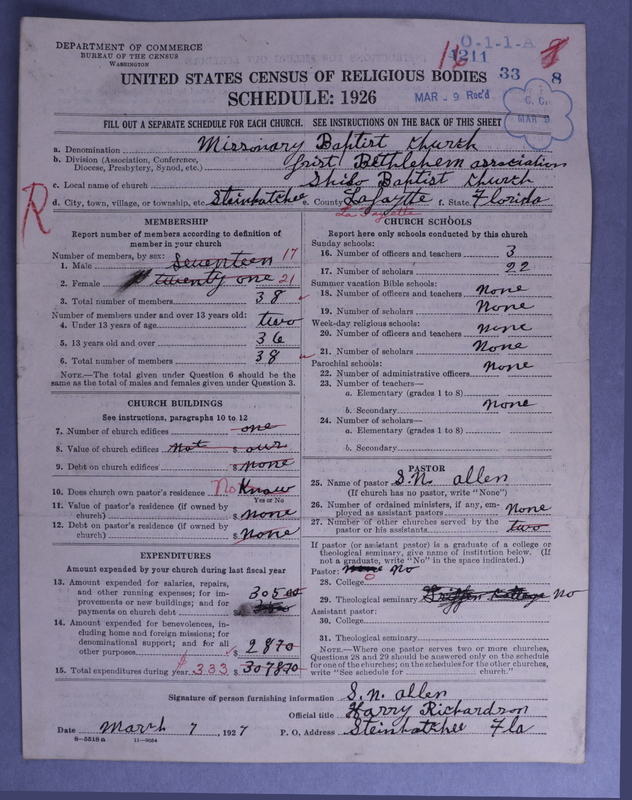 DEPARTMENT OF COMMERCE
BUREAU OF THE CENSUS
WASHINGTON
O-1-1-A
1211
33 8
UNITED STATES CENSUS OF RELIGIOUS BODIES
SCHEDULE: 1926
MAR - 9 Rec'd
C. C.
MAR 9
FILL OUT A SEPARATE SCHEDULE FOR EACH CHURCH. SEE INSTRUCTIONS ON THE BACK OF THIS SHEET
a. Denomination Missionary Baptist Church
b. Division (Association, Conference, Diocese, Presbytery, Synod, etc.) Bethlehem association
c. Local name of church Shilo Baptist Church
d. City, town, village, or township, etc. Steinhatchee e. County Lafaytte f. State Florida
La Fayette
R
MEMBERSHIP
Report number of members according to definition of
member in your church
Number of members, by sex:
1. Male Seventeen 17
2. Female twenty one 21
3. Total number of members 38
Number of members under and over 13 years old:
4. Under 13 years of age two
5. 13 years old and over 36
6. Total number of members 38
NOTE.—The total given under Question 6 should be the
same as the total of males and females given under Question 3.
CHURCH BUILDINGS
See instructions, paragraphs 10 to 12
7. Number of church edifices one
8. Value of church edifices not $ our
9. Debt on church edifices $ none
10. Does church own pastor's residence No Know
Yes or No
11. Value of pastor's residence (if owned by
church) $ none
12. Debt on pastor's residence (if owned by
church) $ none
EXPENDITURES
Amount expended by your church during last fiscal year
13. Amount expended for salaries, repairs,
and other running expenses; for im-
provements or new buildings; and for
payments on church debt 305 00
14. Amount expended for benevolences, in-
cluding home and foreign missions; for
denominational support; and for all
other purposes $ 28 70
15. Total expenditures during year $ 333 $ 3078 70
CHURCH SCHOOLS
Report here only schools conducted by this church
Sunday schools:
16. Number of officers and teachers 3
17. Number of scholars 22
Summer vacation Bible schools:
18. Number of officers and teachers none
19. Number of scholars None
Week-day religious schools:
20. Number of officers and teachers none
21. Number of scholars None
Parochial schools:
22. Number of administrative officers none
23. Number of teachers—
a. Elementary (grades 1 to 8)
b. Secondary none
24. Number of scholars—
a. Elementary (grades 1 to 8)
b. Secondary
PASTOR
25. Name of pastor S.N. allen
(If church has no pastor, write "None")
26. Number of ordained ministers, if any, em-
ployed as assistant pastors None
27. Number of other churches served by the
pastor or his assistants two
If pastor (or assistant pastor) is a graduate of a college or
theological seminary, give name of institution below. (If
not a graduate, write "No" in the space indicated.)
Pastor: none No
28. College 0
29. Theological seminary No
Assistant pastor:
30. College
31. Theological seminary
NOTE.—Where one pastor serves two or more churches,
Questions 28 and 29 should be answered only on the schedule
for one of the churches; on the schedules for the other churches,
write "See schedule for church."
Signature of person furnishing information S. N. allen
Official title Harry Richardson
Date March 7, 1927 P. O. Address Steinhatchee Fla
8—5518a 11—9054